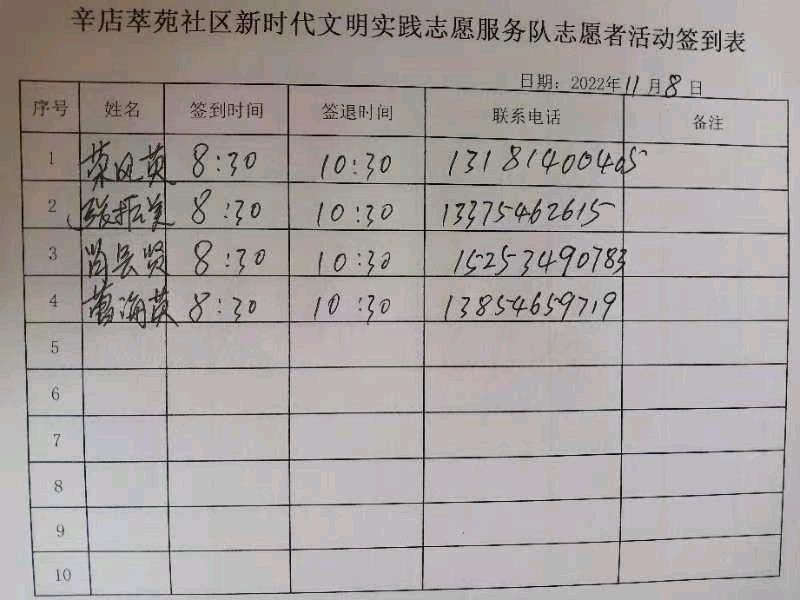 辛店萃苑社区新时代文明实践志愿服务队志愿者活动签到表
日期：2022年11月8日
序号 姓名 签到时间 签退时间 联系电话 备注
1 荣凤英 8:30 10:30 13181400405
2 张振美 8:30 10:30 13375462615
3 8:30 10:30 15253490783
4 海英 8:30 10:30 13854659719
5
6
7
8
9
10